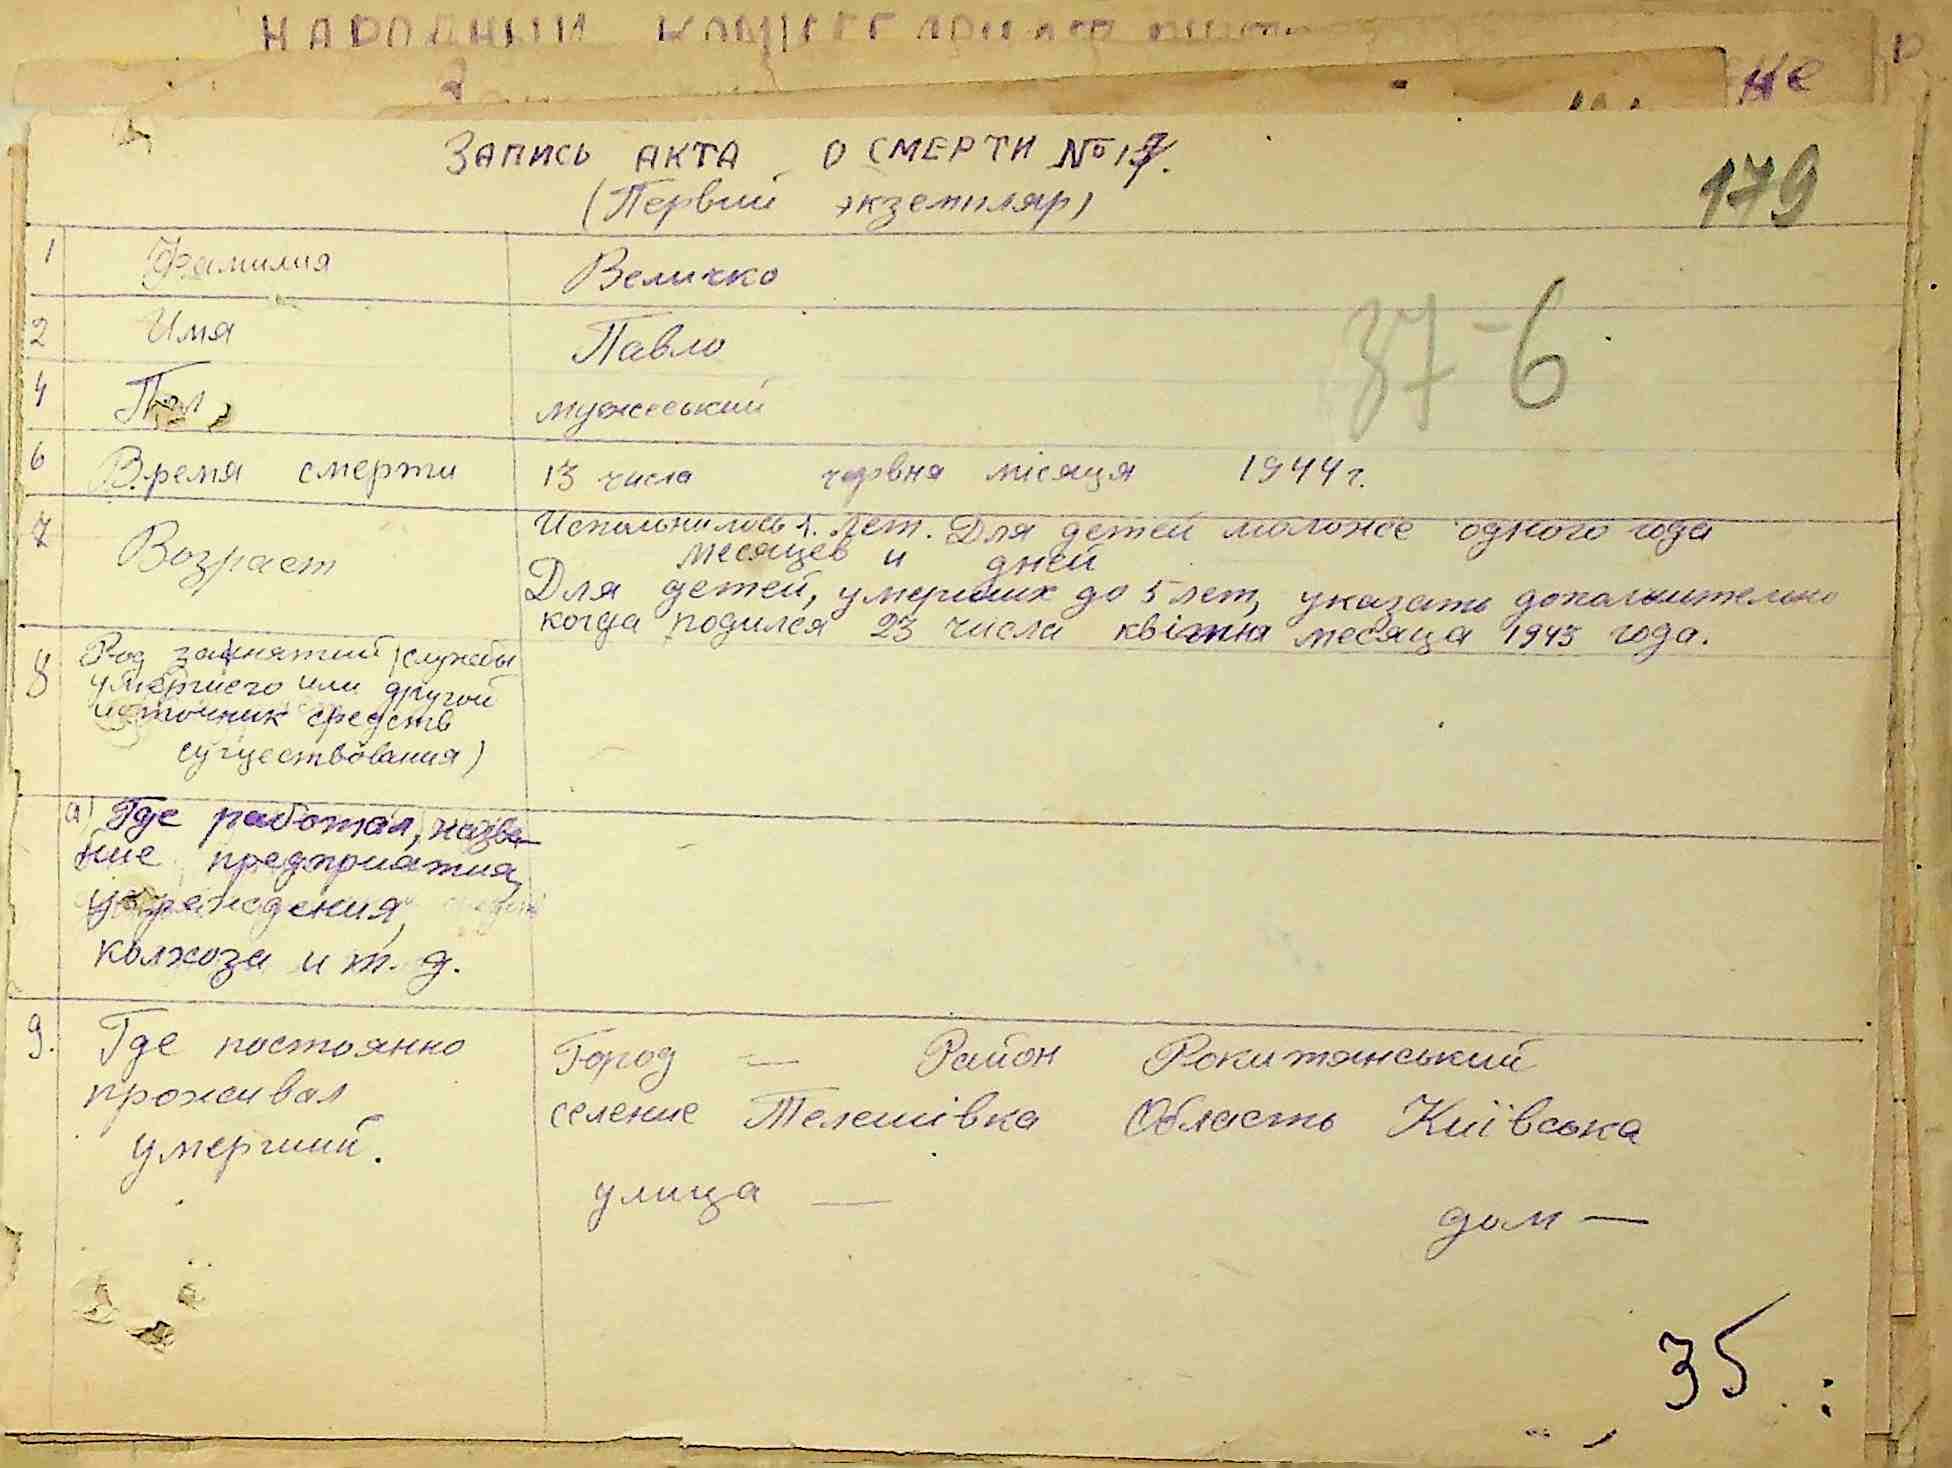 НАРОДНЫЙ КОМИССАРИАТ
не
ЗАПИСЬ АКТА О СМЕРТИ № 17.
(Первий экземпляр)
179
1 Фамилия Величко
2 Имя Павло
37-6
4 Пол мужеський
6 Время смерти 13 числа червня місяця 1944 г.
7 Возраст Испольнилось 1. лет. Для детей моложе одного года
месяцев и дней
Для детей, умерших до 5 лет, указать дополнительно
когда родился 23 числа квітня месяца 1943 года.
8 Род занятий (службы
умершего или другой
источник средств
существования)
а) Где работал, назва-
ние предприятия,
учреждения,
колхоза и т. д.
9. Где постоянно
проживал
умерший.
Город — Район Рокитянський
селение Телешівка Область Київська
улица —
дом —
35